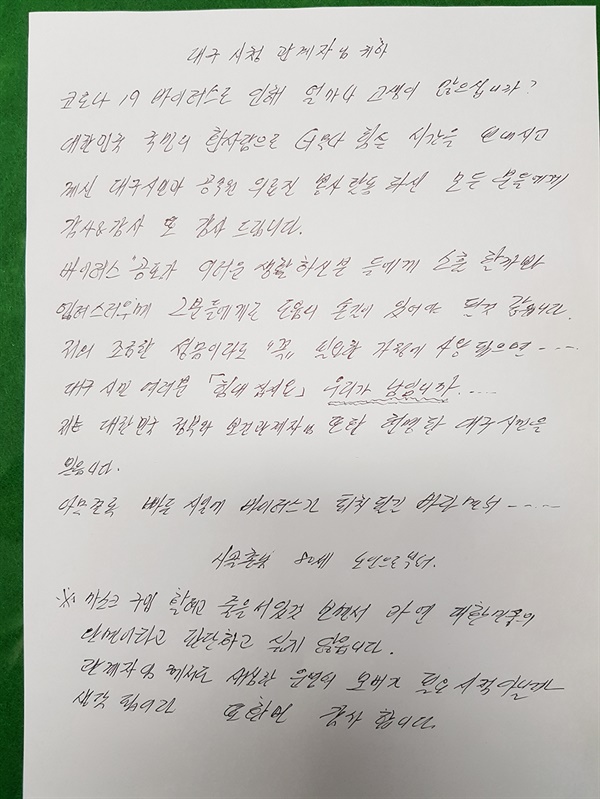 대구 시청 관계자님 귀하
코로나 19 바이러스로 인해 얼마나 고생이 많으십니까?
대한민국 국민의 한사람으로 너무나 힘든 시간을 보내시고
계신 대구시민과 공무원 의료진 봉사활동 하신 모든 분들에게
감사&감사 또 감사 드립니다.
바이러스 공포가 어려운 생활 하신분 들에게 소홀 할가바
염려스러우며 그분들에게도 도움의 손길이 있어야 될것 같습니다.
저의 조그만한 성금이라도 "꼭" 필요한 사용 됬으면 -----
대구 시민 여러분 「힘내 십시요」 우리가 남입니까.....
저는 대한민국 정부와 보건관계자님 또한 현명한 대구시민을
믿읍니다.
아무쪼록 빠른 시일에 바이러스가 퇴치 되길 바라면서 -----
시골촌놈 80세 노인으로부터.
※ 마스크 구입 할려고 줄을서있것 보면서 과연 대한민국의
단면이라고 판단하고 싶지 않읍니다.
관계자님 께서도 필요 시점이 아닐까
생각 됨이라 또한번 감사 합니다.